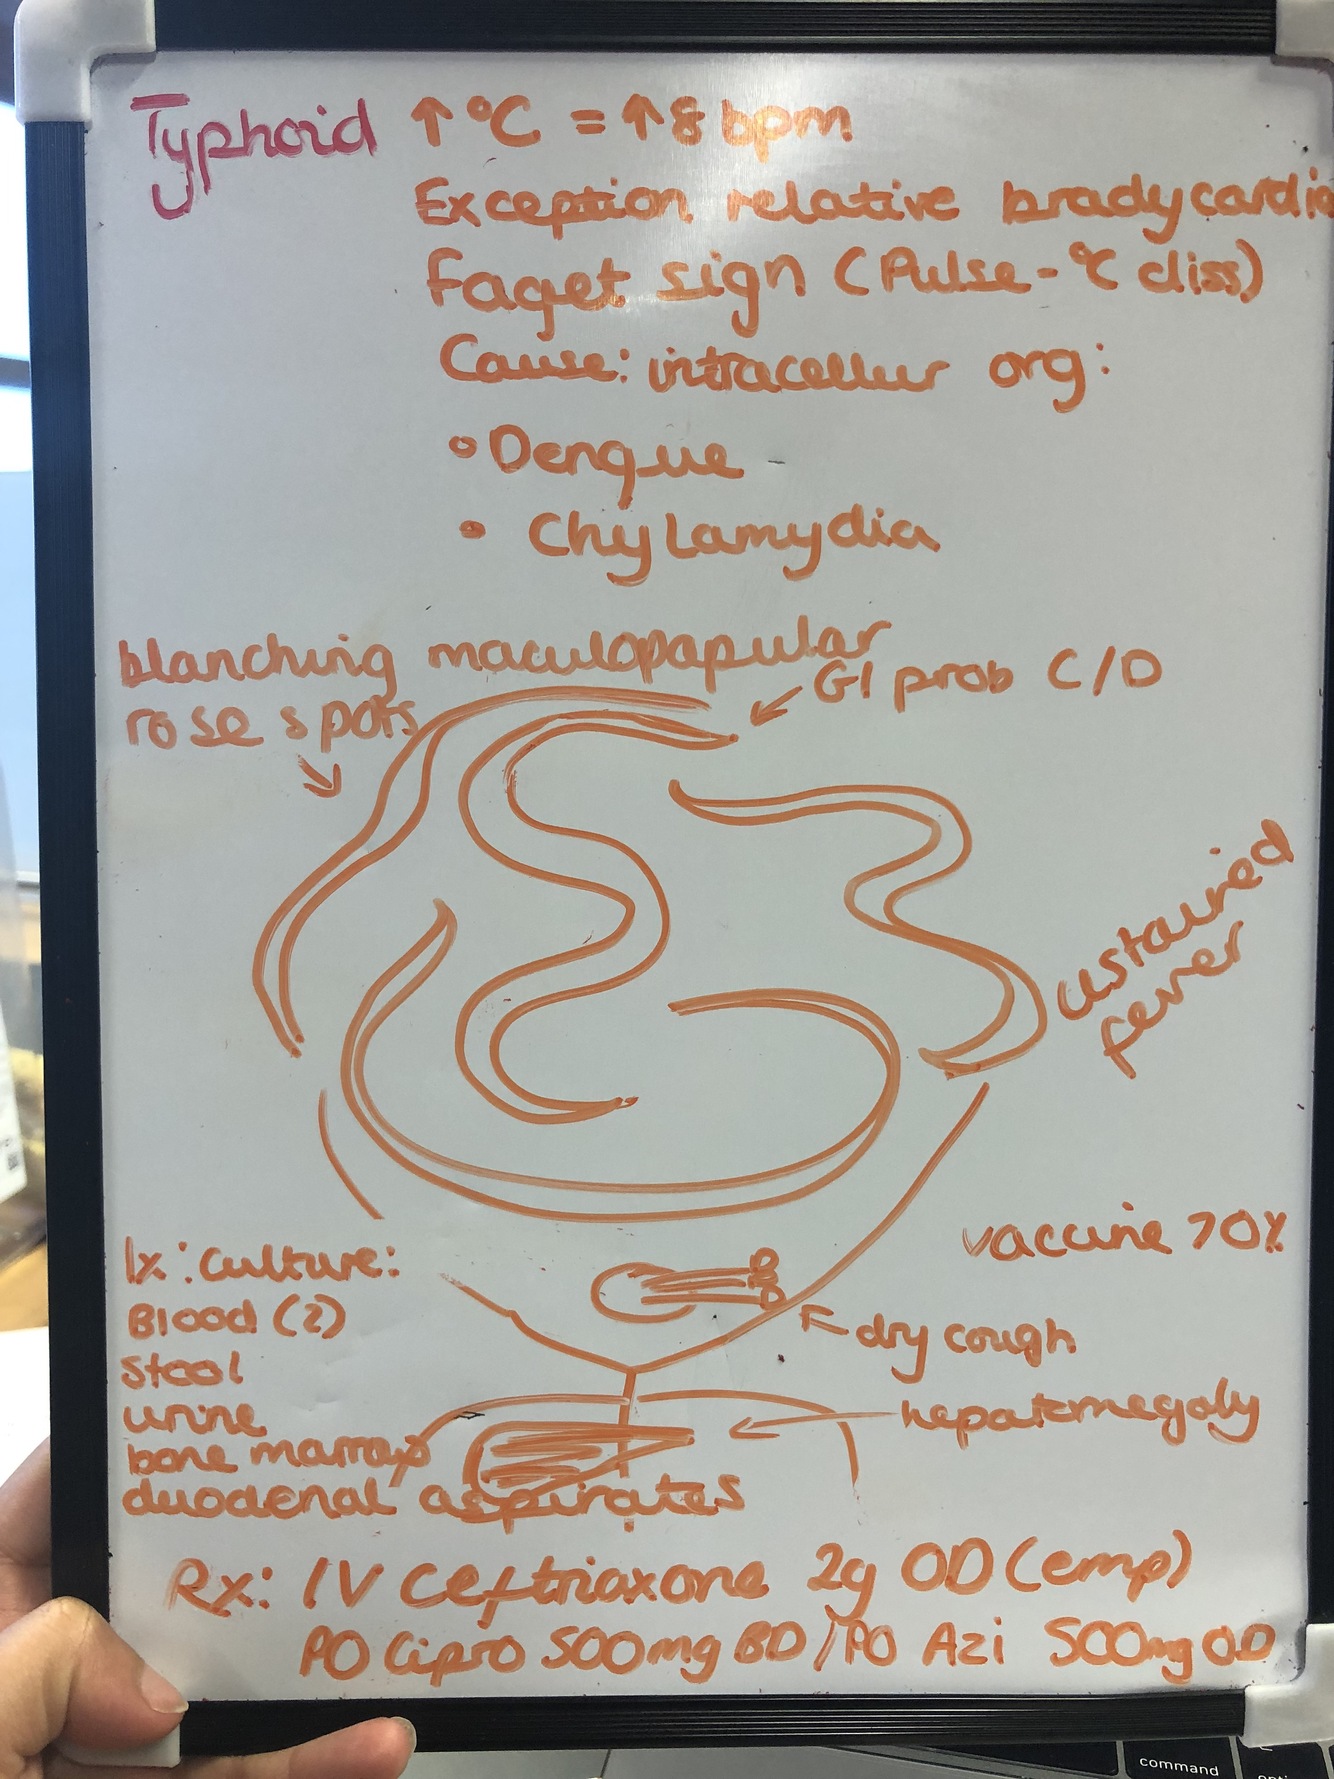 Typhoid ↑°C = ↑8bpm
Exception relative bradycardia
Faget sign (Pulse-°C diss)
Cause: intracellur org:
• Dengue
• Chylamydia
blanching maculopapular
rose spots
GI prob C/D
ustained
fever
vaccine 70%
Ix: Culture:
Blood (2)
Stool
urine
bone marrow
duodenal aspirates
dry cough
hepatomegaly
Rx: IV Ceftriaxone 2g OD (emp)
PO Cipro 500mg BD / PO Azi 500mg OD
command